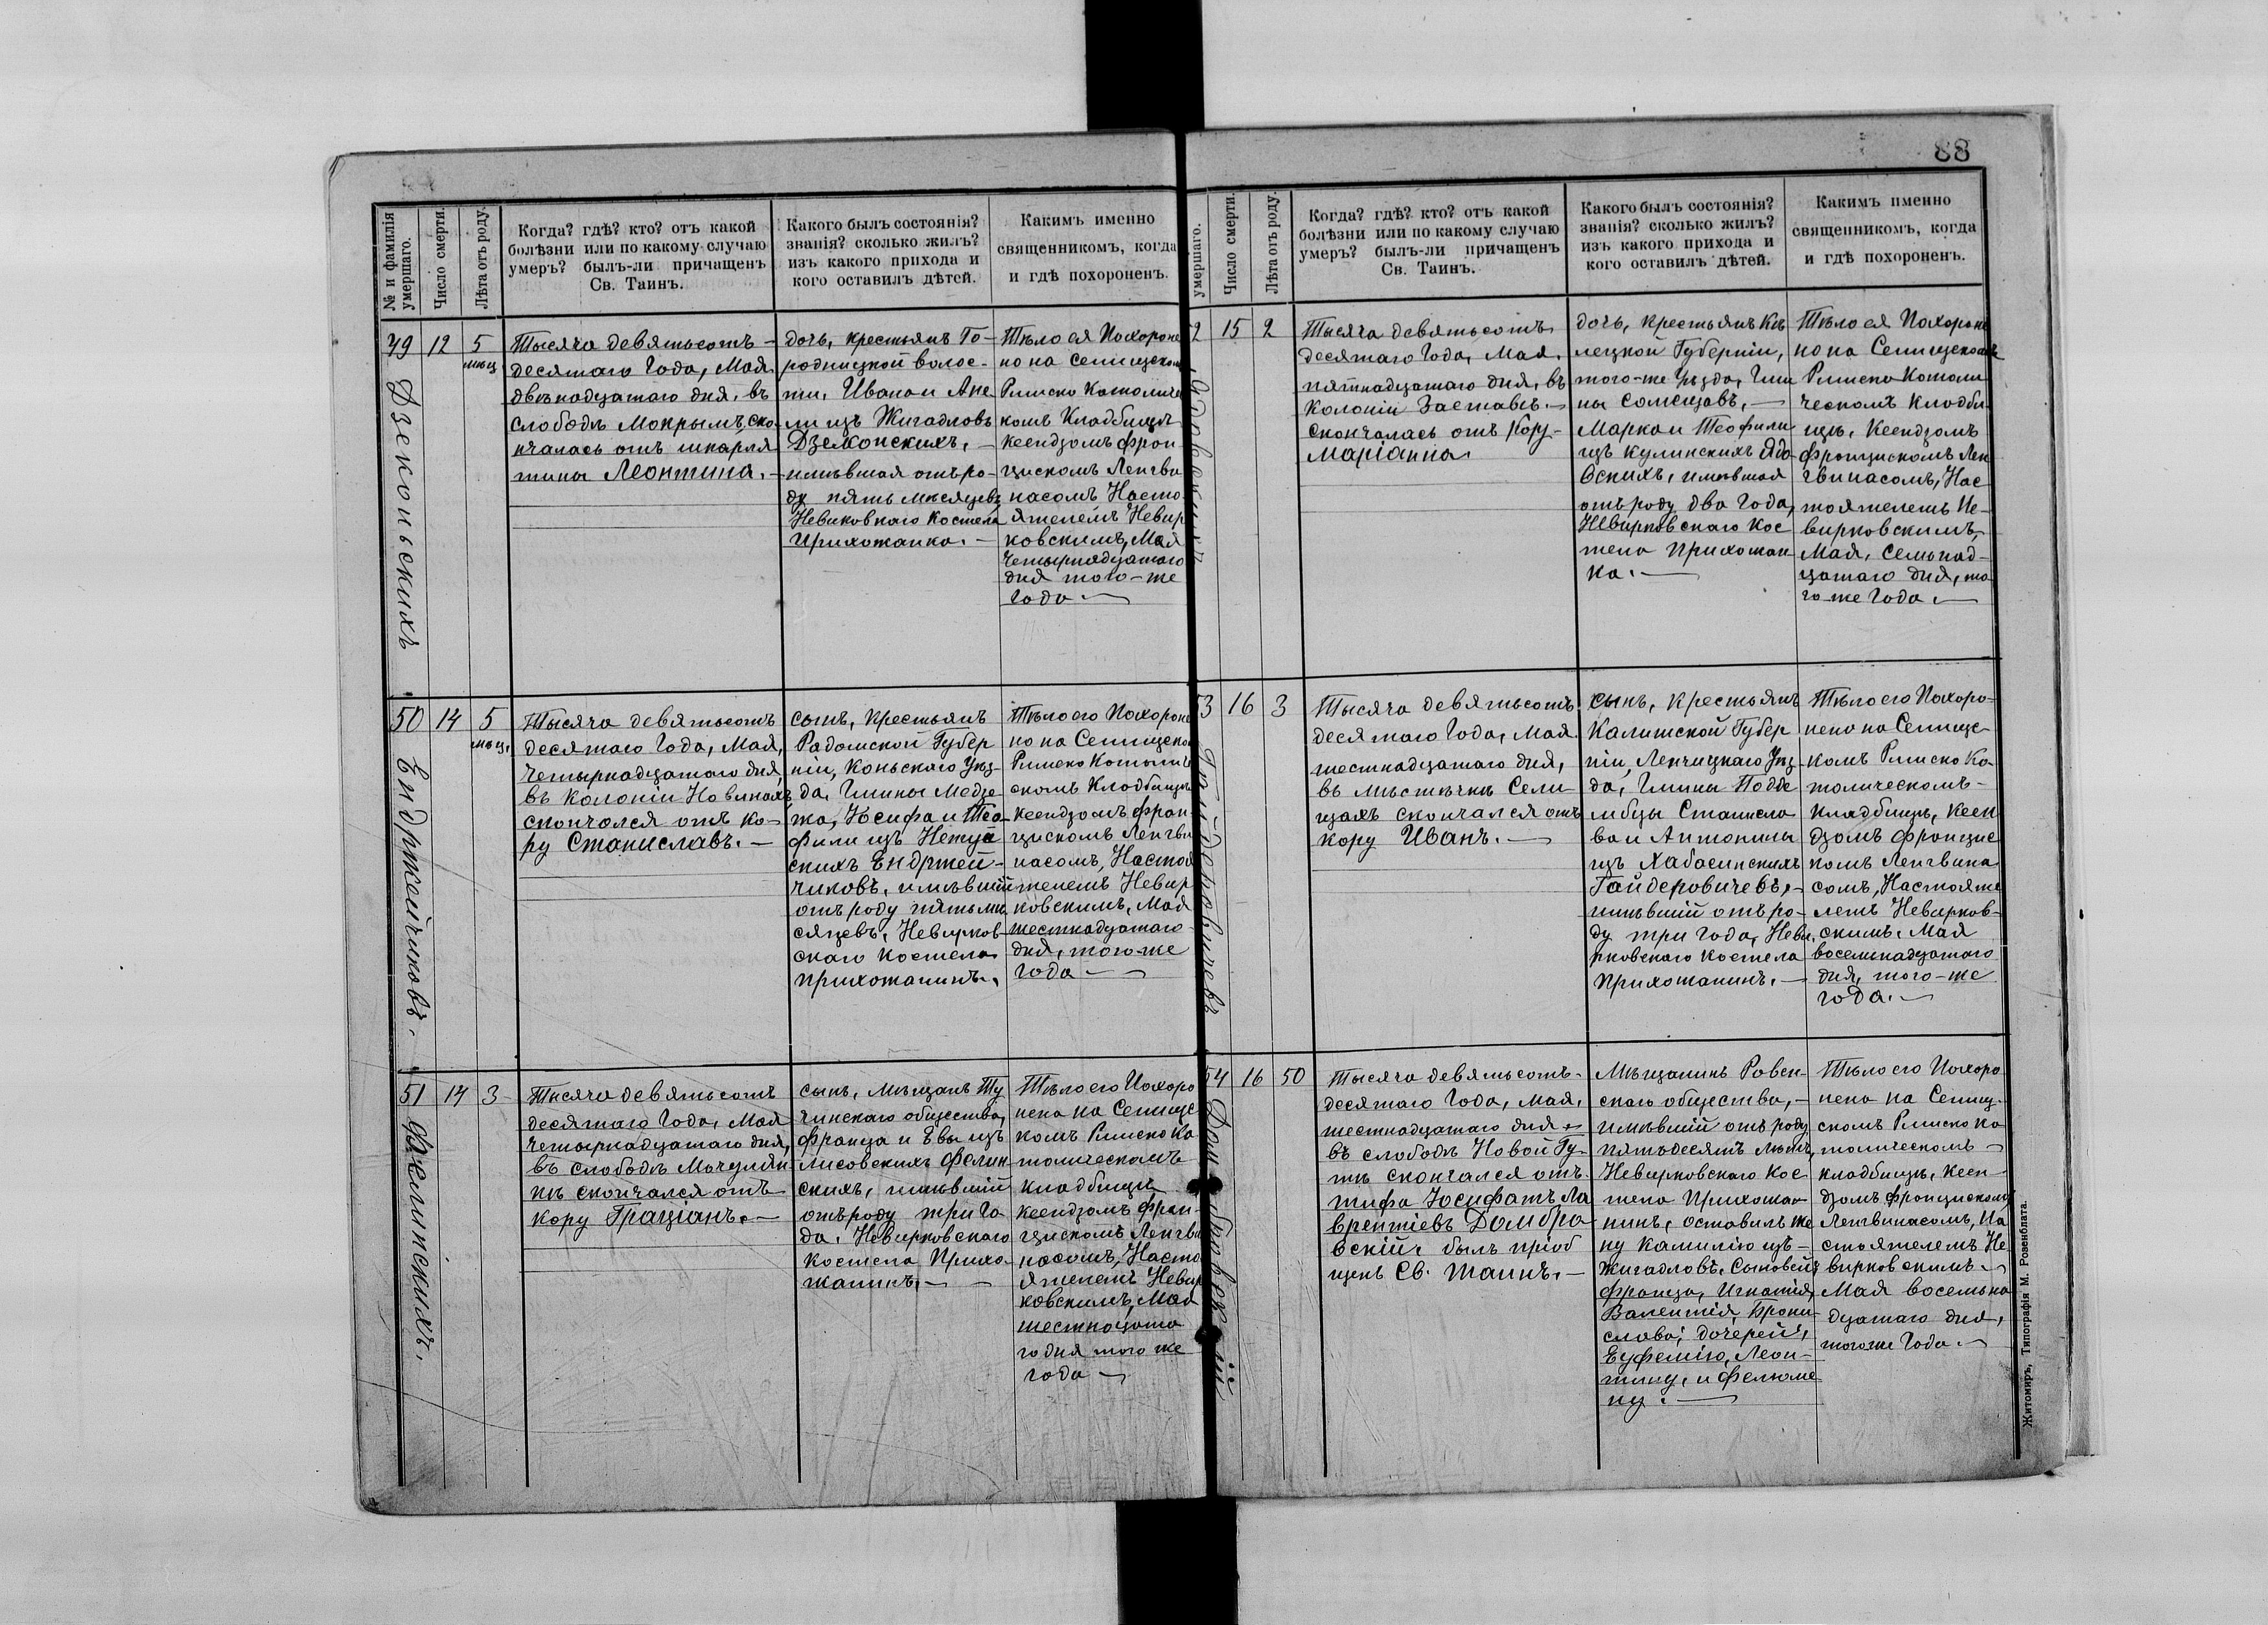 88
№ и фамилія умершаго.
Число смерти.
Лѣта отъ роду.
Когда? гдѣ? кто? отъ какой
болѣзни или по какому случаю
умеръ? былъ-ли причащенъ
Св. Таинъ.
Какого былъ состоянія?
званія? сколько жилъ?
изъ какого прихода и
кого оставилъ дѣтей.
Какимъ именно
священникомъ, когда
и гдѣ похороненъ.
49
Дзеконьскихъ
12
5
мѣс.
Тысяча девятьсотъ
десятаго Года, Мая
двѣнадцатаго дня, въ
слободѣ Мокрымъ, ско-
нчалась отъ шкарля
тины Леонтина. —
дочь, крестьянъ Го-
родницкой волос-
ти, Ивана и Ане
ли изъ Жигадловъ
Дзеконскихъ, —
имѣвшая отъ ро-
ду пять мѣсяцевъ
Невиковнаго Костела
Прихожанка. —
Тѣло ея Похороне
но на Селищском
Римско Католиче
комъ Кладбищѣ
Ксендзомъ Фран
цискомъ Ленгви
насомъ Насто
ятелемъ Невир
ковскимъ, Мая
Четырнадцатаго
дня того-же
Года —
50
Ендржейчиковъ.
14
5
мѣс.
Тысяча девятьсотъ
десятаго Года, Мая,
Четырнадцатаго дня,
въ колоніи Новинахъ
скончался отъ ко-
ру Станиславъ. —
сынъ, Крестьянъ
Радомской Губер
ніи, Коньскаго Уѣз-
да, Гмины Медзе
жа, Іосифа и Тео-
фили изъ
скихъ Ендржей-
чиковъ, имѣвшій
отъ роду пять мѣ
сяцевъ, Невирков-
скаго костела
прихожанинъ.
Тѣло его Похороне
но на Селищско
Римско Католич
скомъ Кладбищѣ
Ксендзомъ Фран
цискомъ Ленгви
насомъ, Настоя
телемъ Невир
ковскимъ, Мая
шестнадцатаго
дня, того-же
года —
51
Фелинскихъ.
14
3
Тысяча девятьсотъ
десятаго Года, Мая
Четырнадцатаго дня,
въ слободѣ Мочулян
кѣ скончался отъ
кору Граціанъ. —
сынъ, мѣщанъ Ту
чинскаго общества,
Франца и Евы изъ
Лисовскихъ Фелин
скихъ, имѣвшій
отъ роду три Го
да, Невирковскаго
костела Прихо-
жанинъ, —
Тѣло его Похоро
нено на Селищс
комъ Римско Ка
толическомъ
кладбищѣ
Ксендзомъ Фран-
цискомъ Ленгви
насомъ, Насто
ятелемъ Невир
ковскимъ, Мая
шестнацата
го дня того же
года —
умершаго.
Число смерти.
Лѣта отъ роду.
Когда? гдѣ? кто? отъ какой
болѣзни или по какому случаю
умеръ? былъ-ли причащенъ
Св. Таинъ.
Какого былъ состоянія?
званія? сколько жилъ?
изъ какого прихода и
кого оставилъ дѣтей.
Какимъ именно
священникомъ, когда
и гдѣ похороненъ.
2
15
2
Тысяча девятьсотъ
десятаго Года, Мая,
пятнадцатаго дня, въ
Колоніи Заставѣ. —
скончалась отъ Кору-
Маріанна.
дочь, крестьянъ Кѣ
лецкой Губерніи,
того-же Уѣзда, Гми
ны —
Марка и Теофили
изъ Кулинскихъ Ядо-
вскихъ, имѣвшая
отъ роду два Года,
Невирковскаго Кос
тела прихожан
ка. —
Тѣло ея Похороне
но на Селищскомъ
Римско Католи
ческомъ Кладби
щѣ, Ксендзомъ
Францискомъ Лен
гвинасомъ, Нас
тоятелемъ Не-
вирковскимъ,
Мая, семьнад-
цатаго дня, то
го-же Года. —
3
Гайдеровичевъ
16
3
Тысяча девятьсотъ
десятаго Года, Мая.
шестнадцатаго дня,
въ мѣстечкѣ Сели
щахъ скончался отъ
кору Иванъ. —
сынъ, Крестьянъ
Калишской Губер
ніи, Ленчицкаго Уѣз-
да, Гмины Поддѣ
мбцы Станисла
ва и Антонины
изъ Хабасинскихъ
Гайдеровичевъ, —
имѣвшій отъ ро-
ду три Года, Неви
рковскаго костела
Прихожанинъ. —
Тѣло его Похоро-
нено на Селищс
комъ Римско Ка-
толическомъ-
Кладбищѣ, Ксен
дзомъ Францис
комъ Ленгвина
сомъ, Настояте
лемъ Невирков-
скимъ, Мая
восемнадцатаго
дня, того-же
года. —
54
Домбровскій
16
50
Тысяча девятьсотъ-
десятаго Года, Мая,
шестнадцатаго дня —
въ слободѣ Новой Гу-
тѣ скончался отъ
тифа Іосифатъ Ла
врентіевъ Домбро
вскій. былъ пріоб
щенъ Св. Таинъ. —
Мѣщанинъ Ровен-
скаго общества, —
имѣвшій отъ роду
пятьдесятъ лѣтъ,
Невирковскаго Кос
тела Прихожа-
нинъ, оставилъ же
ну Камилію изъ —
Жигадловъ. Сыновей
Франца, Игнатія,
Валентія, Брони-
слава, дочерей,
Еуфемію, Леон-
тину, и Фелюме
ну. —
Тѣло его Похоро
нено на Селищ-
скомъ Римско Ка
толическомъ —
кладбищѣ, Ксен-
дзомъ Францискомъ
Ленгвинасомъ, На
стоятелемъ Не-
вирковскимъ —
Мая восемьна
дцатаго дня,
тогоже Года. —
Житомиръ, Типографія М. Розенблата.